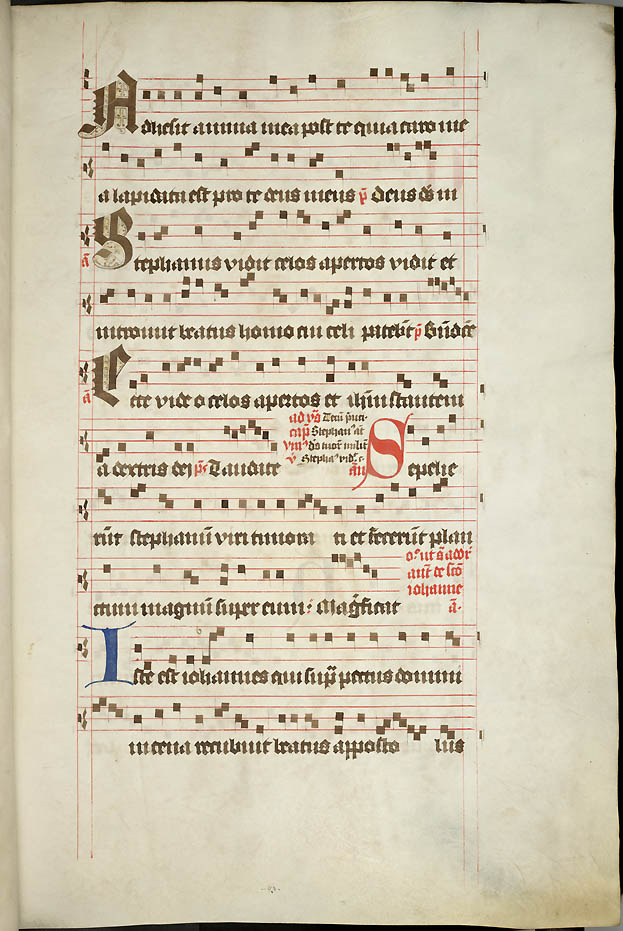 Adhesit anima mea post te quia caro me
a lapidata est pro te deus meus p̄ deus ds̄ m
ā Stephanus vidit celos apertos vidit et
introivit beatus homo cui celi patebāt p̄ Bn̄dcē
ā Ecce video celos apertos et ihm̄ stantem
a dextris dei ps̄ Laudate
ad vs̄
cap̄ Stephanꝰ aūt
Sepelie
rūt stephanū viri timora ti et fecerūt plan
ctum magnū super eum : Magn̄ficat
oꝛ ut sͣ
ant̄ de scō
iohanne
ā.
Iste est iohannes qui sup̄ pectus domini
in cena recubuit beatus apposto lus